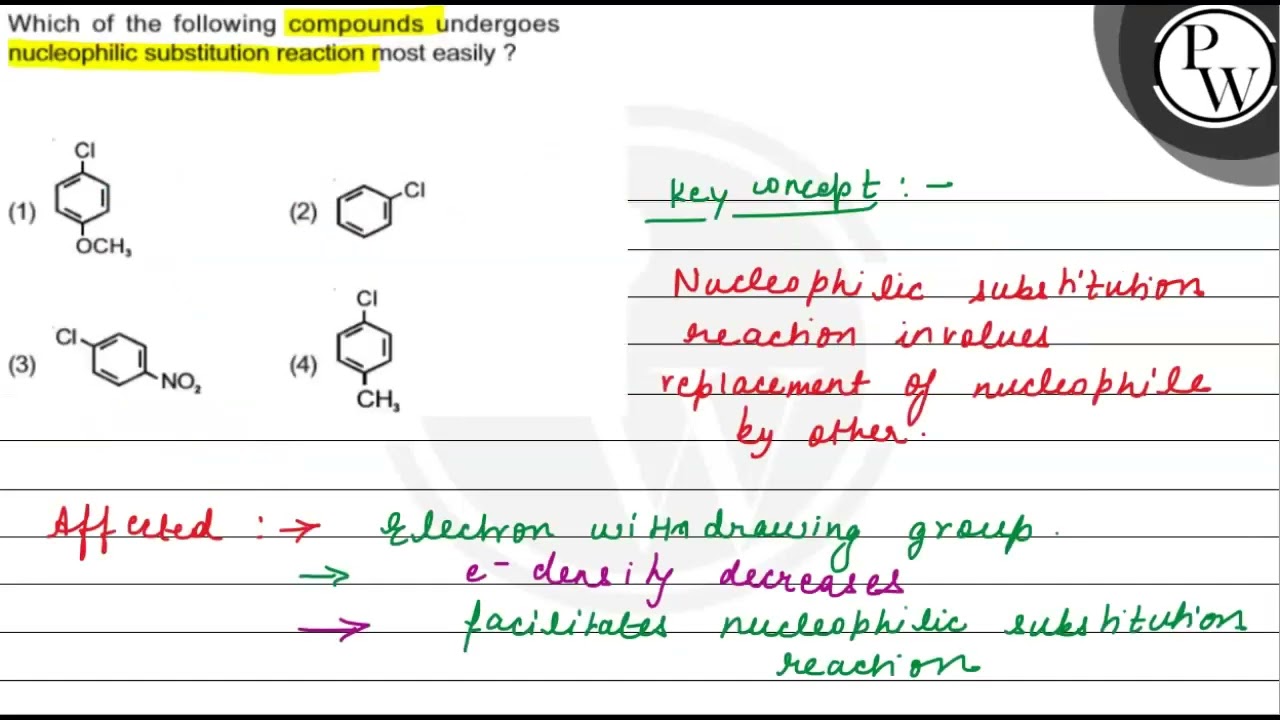 Which of the following compounds undergoes
nucleophilic substitution reaction most easily ?
P
W
(1)
Cl
OCH₃
(2)
Cl
(3)
Cl
NO₂
(4)
Cl
CH₃
Key concept : -
Nucleophilic substitution
reaction involves
replacement of nucleophile
by other.
Affected : → Electron withdrawing group.
→ e⁻ density decreases
→ facilitates nucleophilic substitution
reaction